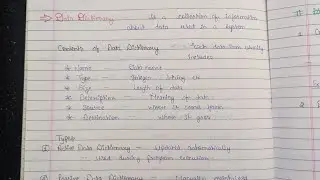 ⇒ Data Dictionary Is a collection of information
about data used in a system
Contents of Data Dictionary → Each data item usually
includes
* Name Data name
* Type Integer, String etc
* Size Length of data
* Description Meaning of data
* Source where it comes from
* Destination where it goes
Types
① Active Data Dictionary - Updated automatically
used during program execution
② Passive Data Dictionary - Manually maintained